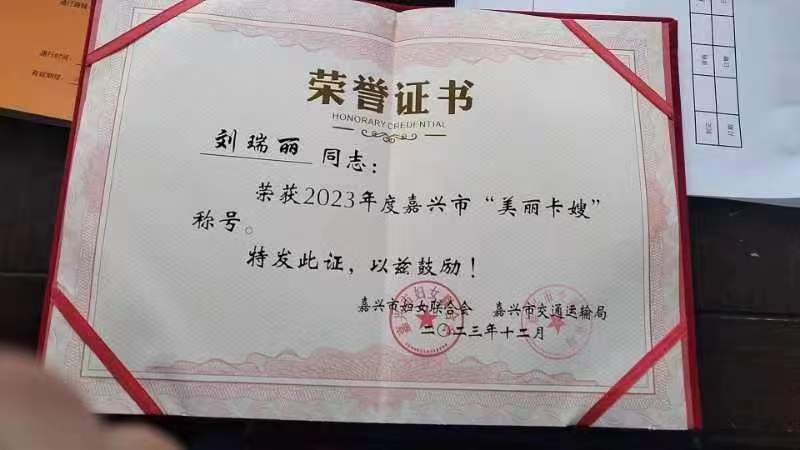 荣誉证书
HONORARY CREDENTIAL
刘瑞丽 同志：
荣获2023年度嘉兴市“美丽卡嫂”
称号。
特发此证，以兹鼓励！
嘉兴市妇女联合会 嘉兴市交通运输局
二〇二三年十二月